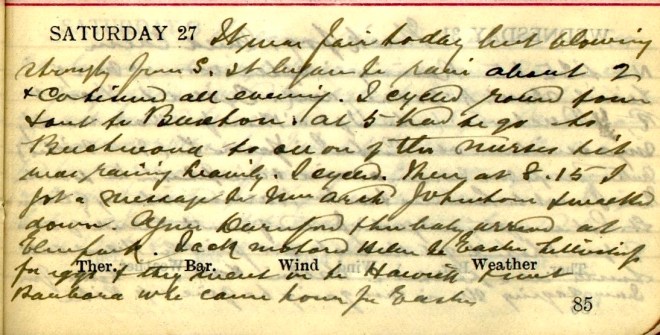 SATURDAY 27 It was fair today but blowing
strongly from S. It began to rain about 2
& continued all evening. I cycled round town
& out to Buxton. at 5 had to go to
Beechwood to see one of the nurses but
was raining heavily. I cycled. Then at 8.15 I
got a message to Johnstone & walked
down. Durnford & the baby arrived at
Jack motored Helen to Easter
for eggs & they went on to Hawick & met
Barbara who came home for Easter
Ther. Bar. Wind Weather
85